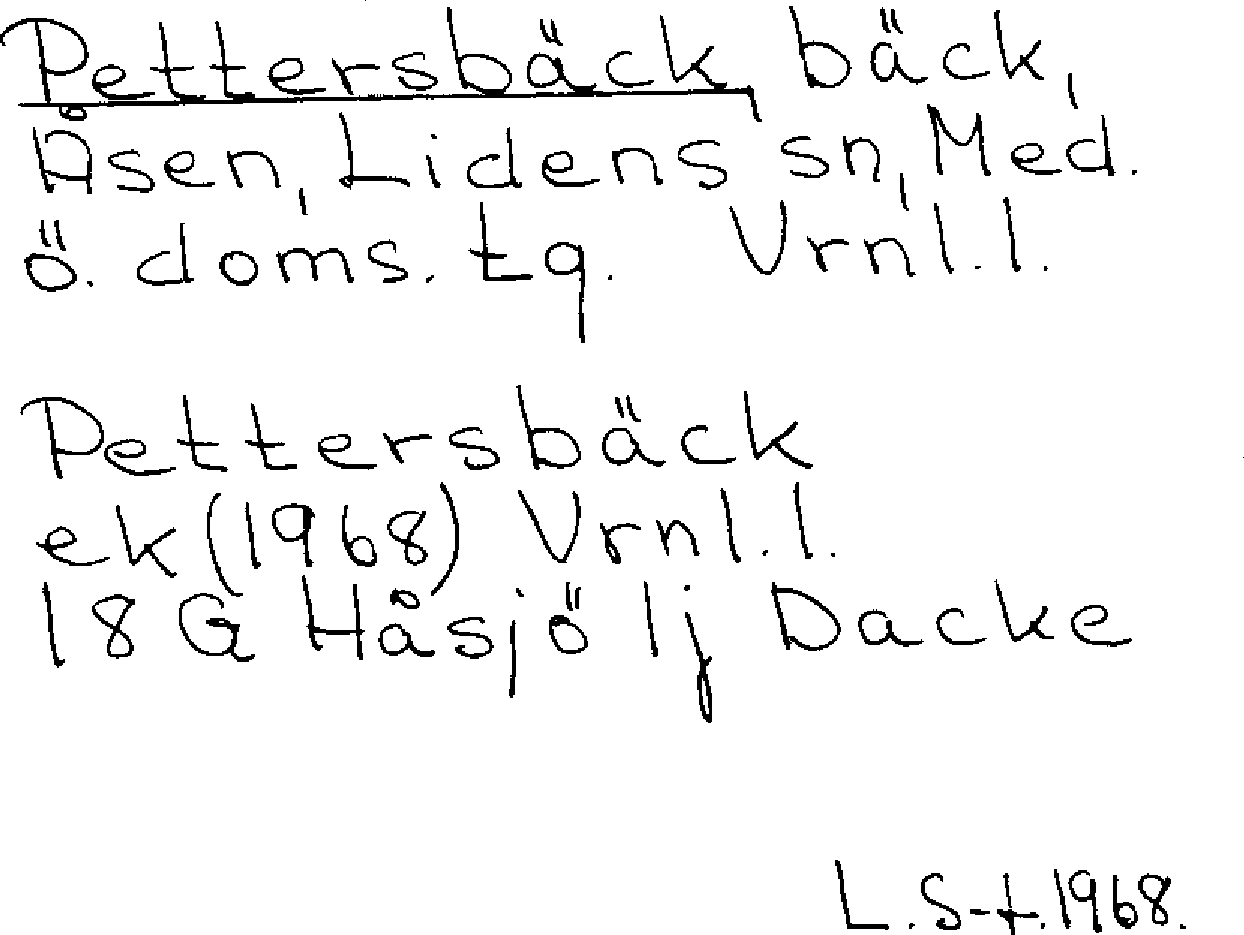 Pettersbäck, bäck,
Åsen, Lidens sn, Med.
ö. doms. tg. Vrnl.l.
Pettersbäck
ek (1968) Vrnl.l.
18 G Håsjö lj Dacke
L.S-t.1968.